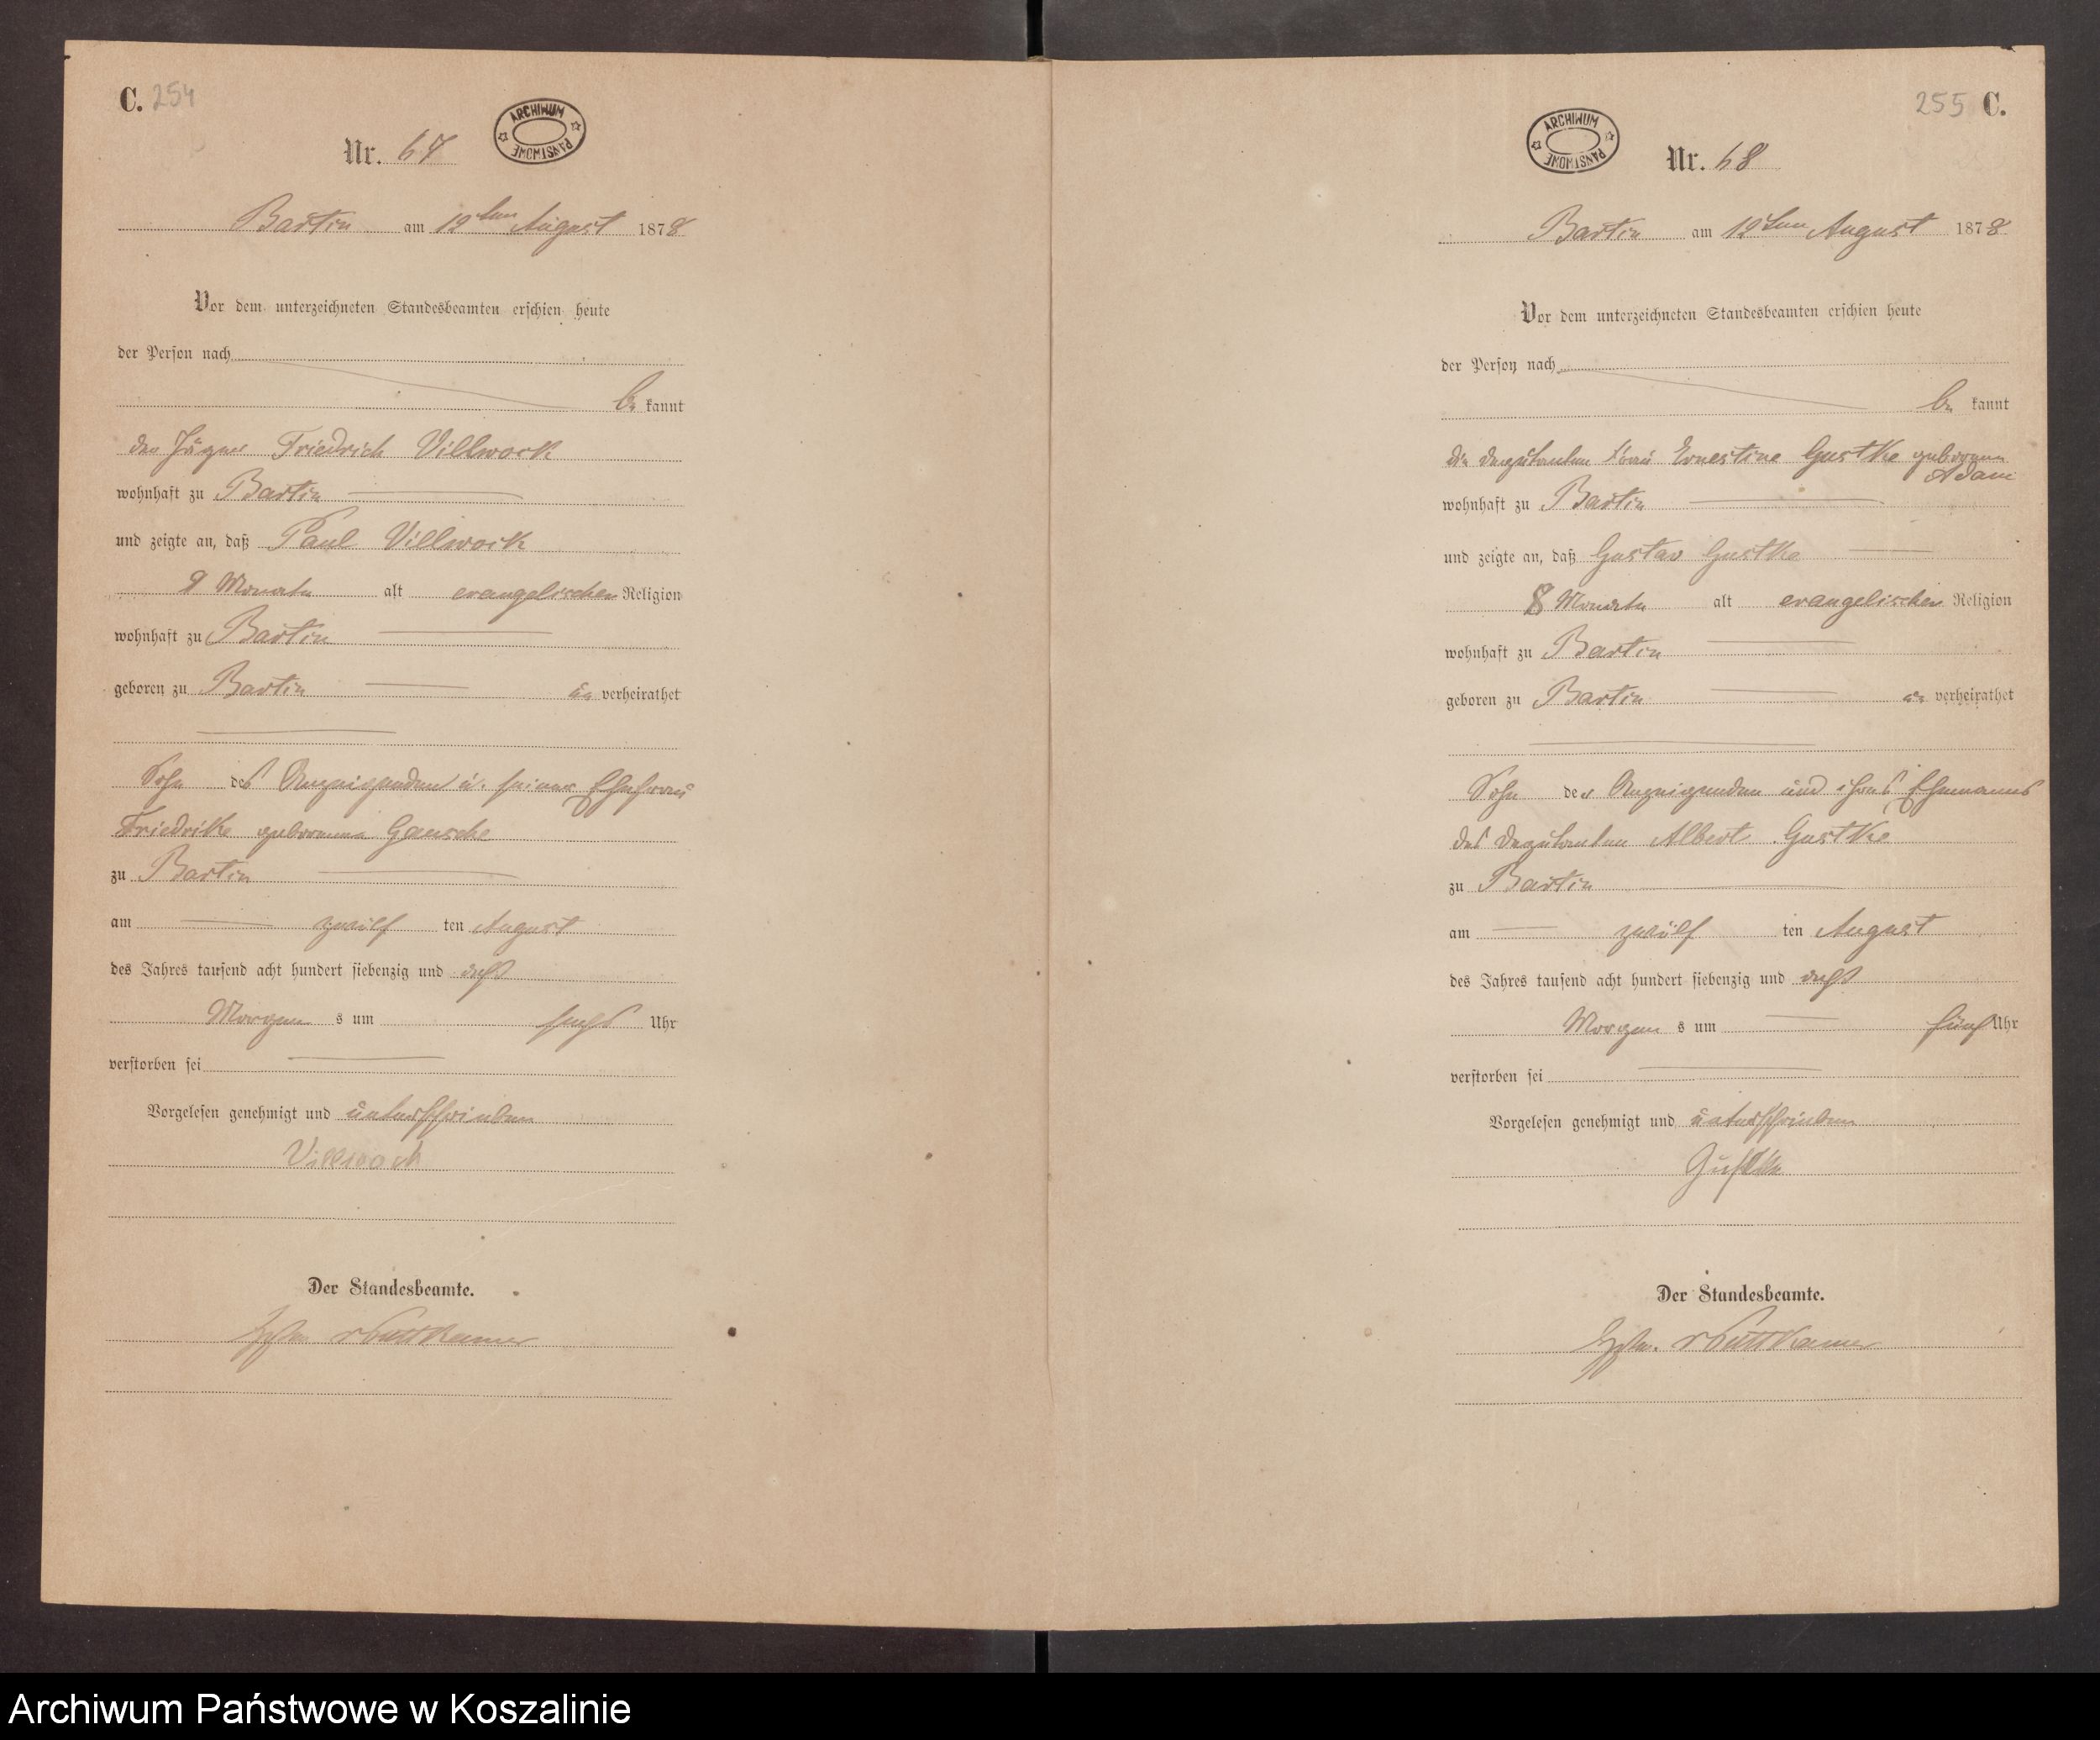 C. 254
ARCHIWUM PAŃSTWOWE
Nr. 67
Bartin am 12ten August 1878
Vor dem unterzeichneten Standesbeamten erschien heute
der Person nach
be kannt
der Jäger Friedrich Villwock
wohnhaft zu Bartin
und zeigte an, daß Paul Villwock
9 Monate alt evangelischer Religion
wohnhaft zu Bartin
geboren zu Bartin un verheirathet
Sohn des Anzeigenden u. seiner Ehefrau
Friedrike geborenen Gansche
zu Bartin
am zwölf ten August
des Jahres tausend acht hundert siebenzig und acht
Morgen s um sechs Uhr
verstorben sei
Vorgelesen genehmigt und unterschrieben
Villwock
Der Standesbeamte.
v Puttkamer
255 C.
ARCHIWUM PAŃSTWOWE
Nr. 68
Bartin am 12ten August 1878
Vor dem unterzeichneten Standesbeamten erschien heute
der Person nach
be kannt
die Deputanten Frau Ernestine Gustke geborene
Adam
wohnhaft zu Bartin
und zeigte an, daß Gustav Gustke
8 Monate alt evangelischer Religion
wohnhaft zu Bartin
geboren zu Bartin un verheirathet
Sohn der Anzeigenden und ihres Ehemannes
des Deputanten Albert Gustke
zu Bartin
am zwölf ten August
des Jahres tausend acht hundert siebenzig und acht
Morgen s um fünf Uhr
verstorben sei
Vorgelesen genehmigt und unterschrieben
Gustke
Der Standesbeamte.
v Puttkamer
Archiwum Państwowe w Koszalinie